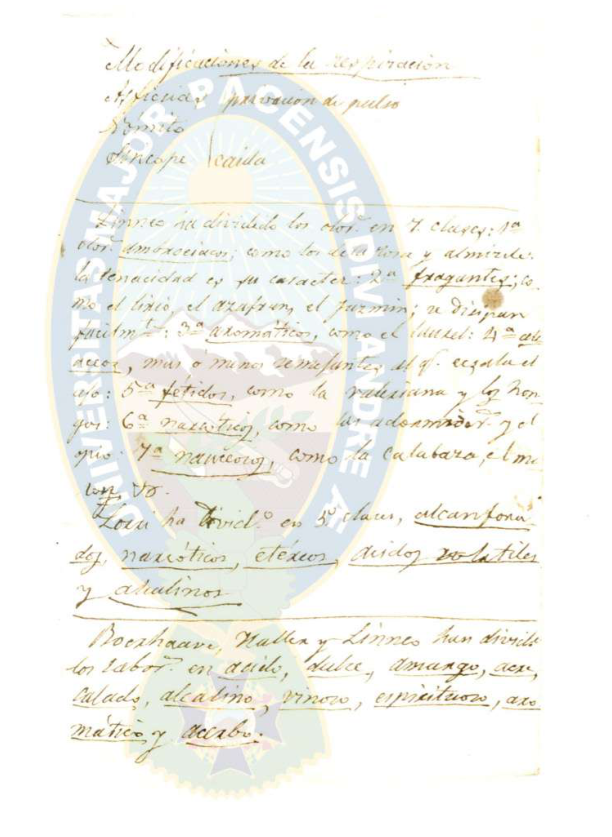 Modificaciones de la respiración
Asficcias privacion de pulso
Vomito
Síncope caida
Linneo ha dividido los olor.s en 7 clases: 1ª
olor. ambrociacos; como los de la rosa y almizcle:
la tenacidad es su caracter: 2ª fragantes; co-
mo el lirio el azafran, el jazmin; se disipan
facilm.te: 3ª aromáticos, como el laurel: 4ª alia-
aceos, mas ó menos semejantes al q.e exala el
ajo: 5ª fetidos, como la valeriana y los hon-
gos: 6ª narcoticos, como las adormider.s y el
opio 7ª nauceosos, como la calabaza, el me-
lon,
ha divid.o en 5 clases, alcanfora-
dos, narcóticos, etéreos, acidos volatiles
y alcalinos
Boerhaave, Haller y Linneo han dividido
los sabor.s en acido, dulce, amargo, acre,
salado, alcalino, vinoso, espirituoso, aro-
mático y acerbo.
UNIVERSITAS MAJOR PACENSIS DIVI ANDRE Æ